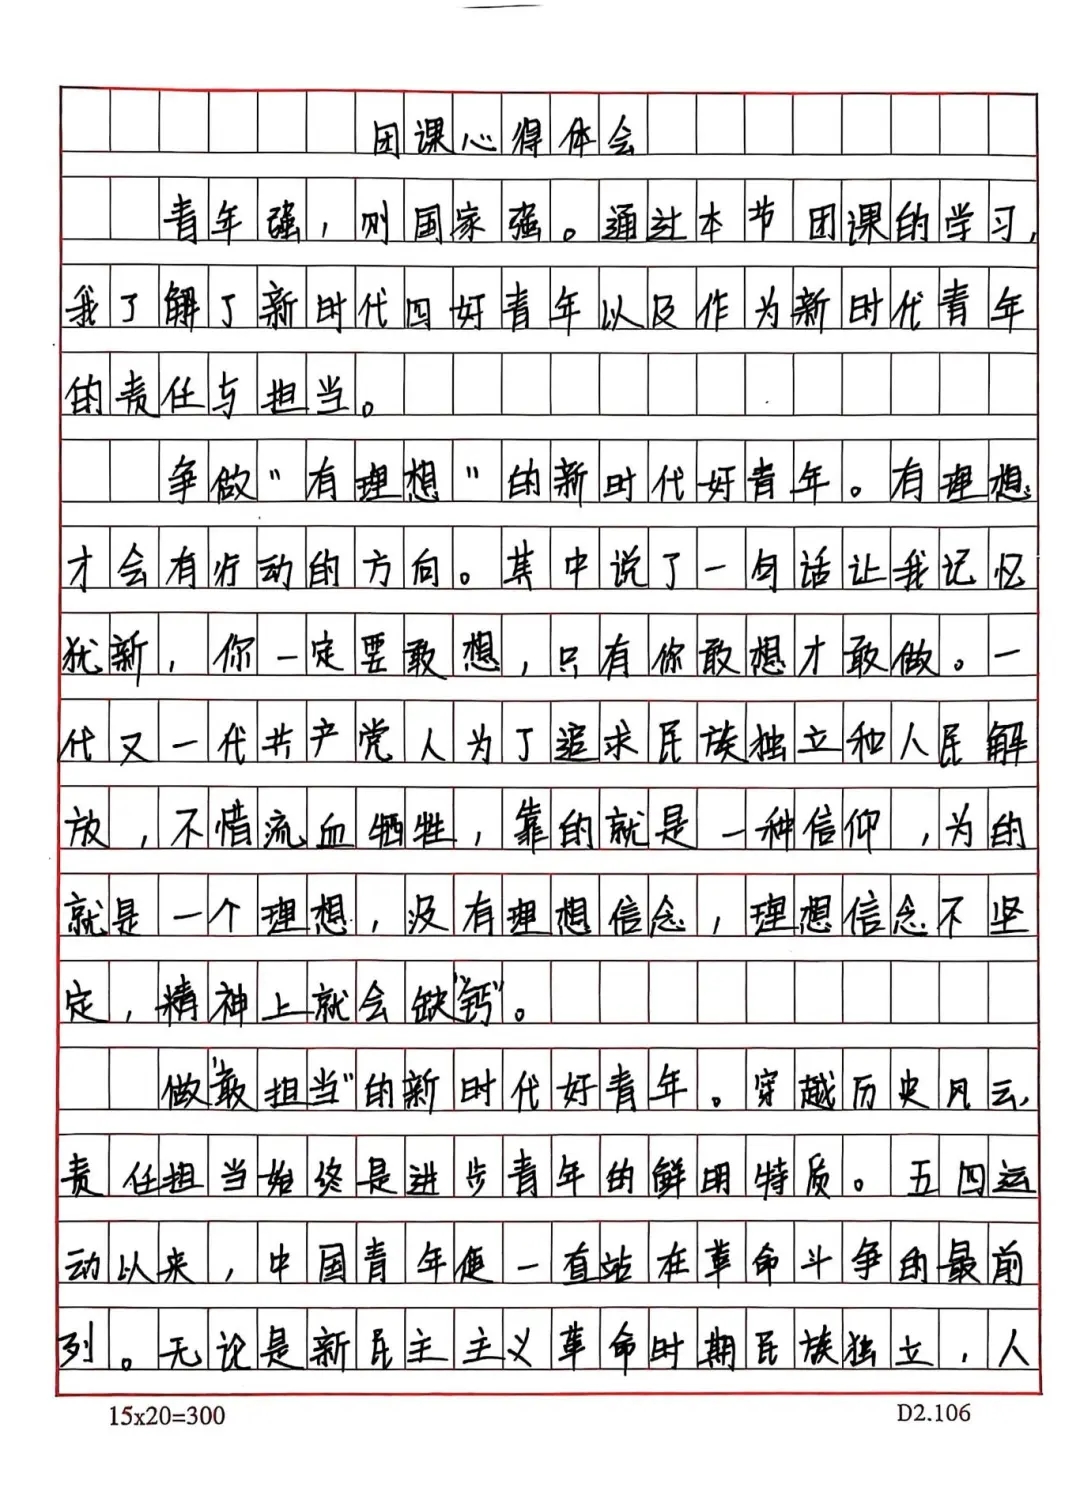 团课心得体会
青年强，则国家强。通过本节团课的学习，
我了解了新时代四好青年以及作为新时代青年
的责任与担当。
争做"有理想"的新时代好青年。有理想，
才会有行动的方向。其中说了一句话让我记忆
犹新，你一定要敢想，只有你敢想才敢做。一
代又一代共产党人为了追求民族独立和人民解
放，不惜流血牺牲，靠的就是一种信仰，为的
就是一个理想，没有理想信念，理想信念不坚
定，精神上就会缺"钙"。
做"敢担当"的新时代好青年。穿越历史风云，
责任担当始终是进步青年的鲜明特质。五四运
动以来，中国青年便一直站在革命斗争的最前
列。无论是新民主主义革命时期民族独立，人
15x20=300
D2.106